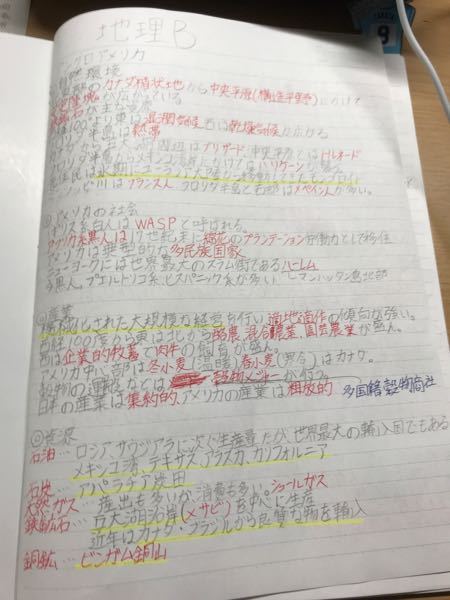 地理B
アングロアメリカ
自然環境
カナダ楯状地から中央平原(構造平野)にかけて
西経100°より東は湿潤気候 西は乾燥気候が広がる
フロリダ半島は熱帯
ブリザード 中央平原ではトルネード
メキシコ湾岸にかけてはハリケーンが襲う
ミシシッピ川はフランス人 フロリダ半島と西部はスペイン人が多い。
アメリカの社会
イギリス系白人はWASPと呼ばれる。
アフリカ系黒人は17世紀より綿花のプランテーション労働力として移住
アメリカは典型的な多民族国家
ニューヨークには世界最大のスラム街であるハーレム
黒人。プエルトリコ系ヒスパニック系が多い マンハッタン島北部
産業
機械化された大規模な経営を行い適地適作の傾向が強い。
西経100度から東は北から酪農、混合農業、園芸農業が盛ん。
西は企業的牧畜で肉牛の飼育が盛ん。
アメリカ中心部は冬小麦(温暖)春小麦(寒冷)はカナダ。
穀物の運搬などは 穀物メジャーが行う。
日本の産業は集約的、アメリカの産業は粗放的 多国籍穀物商社
資源
石油…ロシア、サウジアラビアに次ぐ生産量だが、世界最大の輸入国でもある
メキシコ湾、テキサス、アラスカ、カリフォルニア
石炭…アパラチア炭田
天然ガス…産出も多いが消費も多い シェールガス
鉄鉱石…五大湖沿岸(メサビ)を中心に生産
近年はカナダ、ブラジルから良質な物を輸入
銅鉱…ビンガム銅山